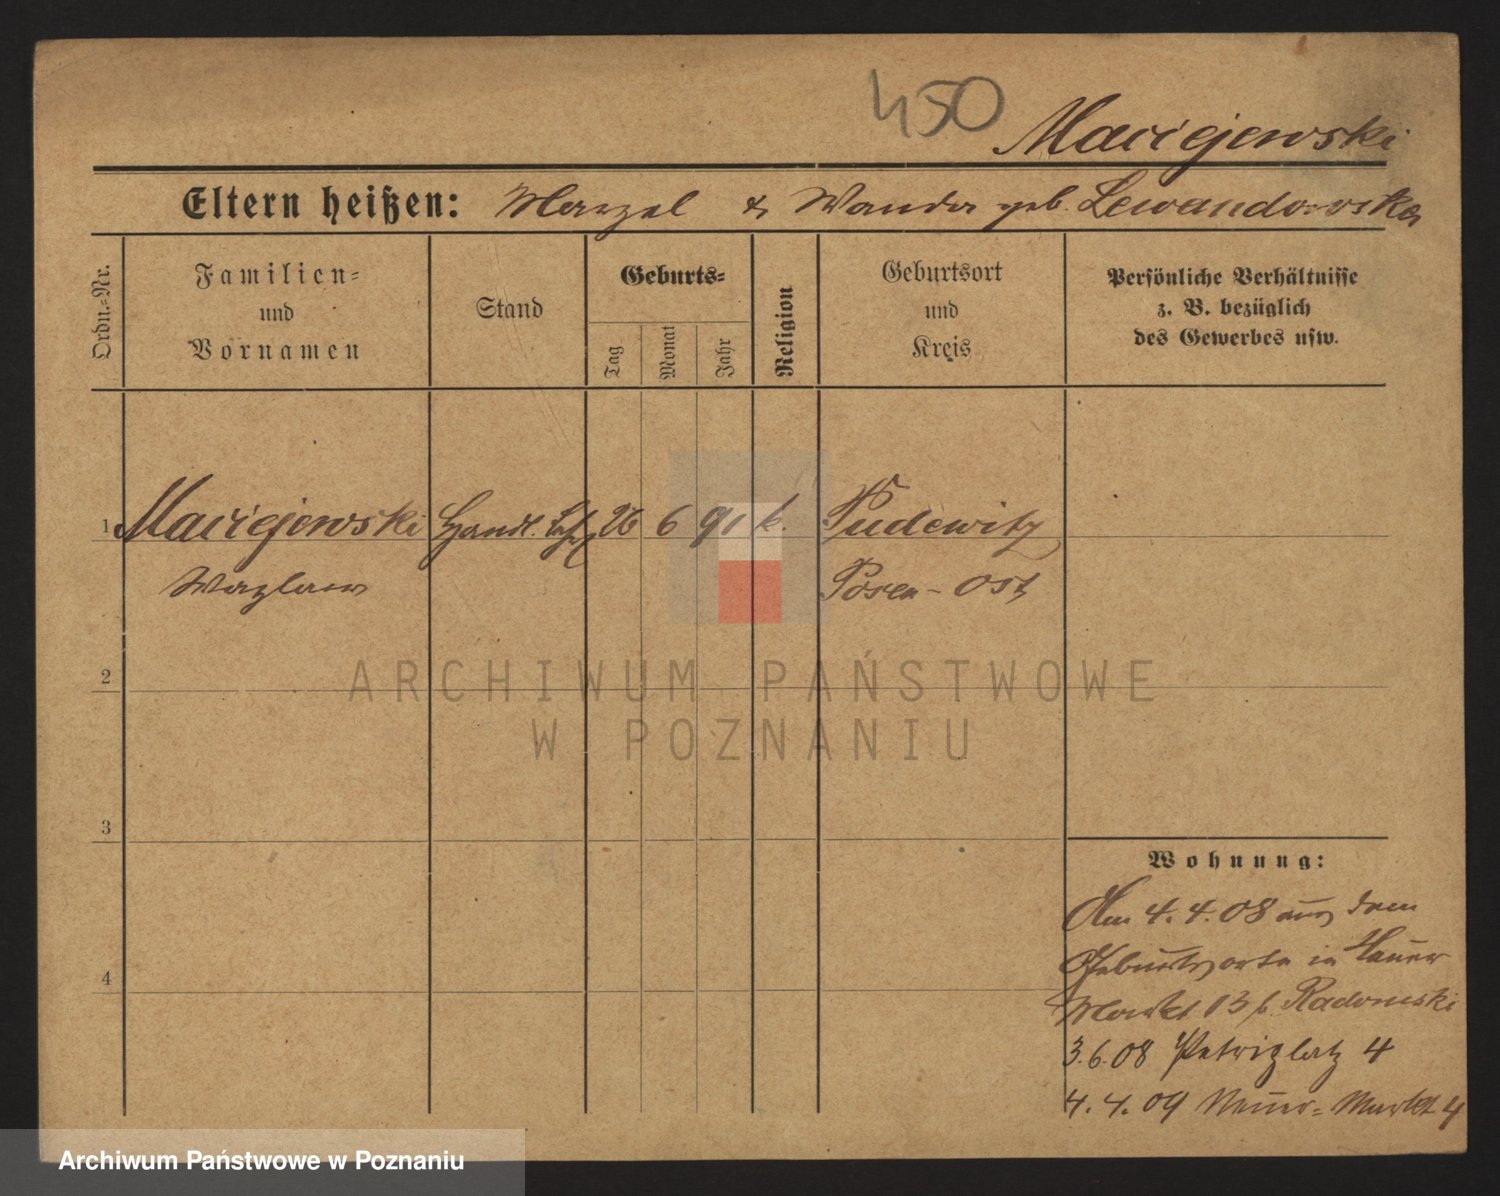 450
Maciejewski
Eltern heißen: Marzel & Wanda geb. Lewandowska
Ordn.-Nr.
Familien-
und
Vornamen
Stand
Geburts-
Tag
Monat
Jahr
Religion
Geburtsort
und
Kreis
Persönliche Verhältnisse
z. B. bezüglich
des Gewerbes usw.
1 Maciejewski Handl. 26 6 91 k. Pudewitz
Wazlaw Posen-Ost
2
3
4
Wohnung:
Am 4.4.08 aus dem
Geburtsorte in Neuer
Markt 13 b. Radomski
3.6.08 Petriplatz 4
4.4.09 Neuer-Markt 4
ARCHIWUM PAŃSTWOWE
W POZNANIU
Archiwum Państwowe w Poznaniu